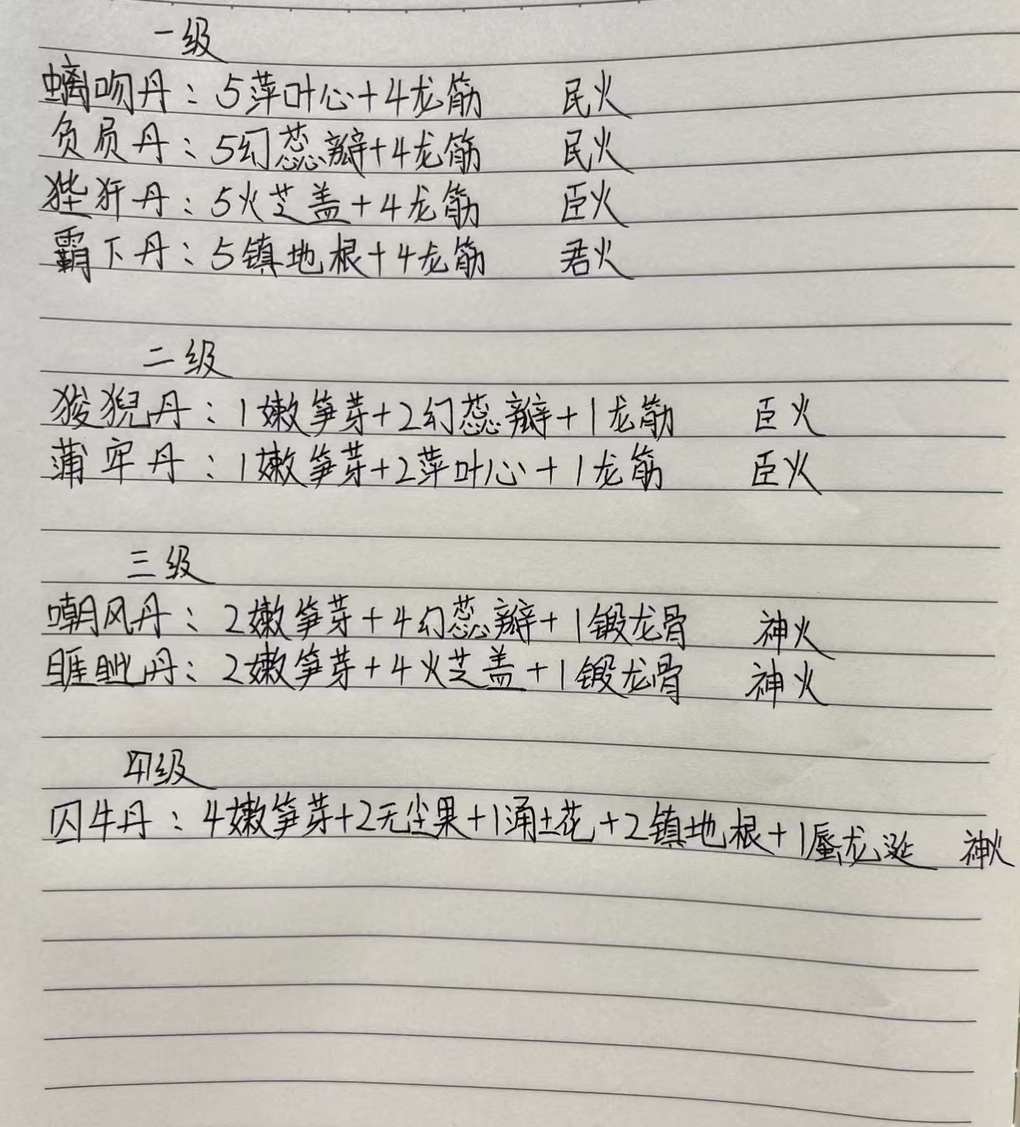 一级
螭吻丹：5萍叶心+4龙筋 民火
负屃丹：5幻蕊瓣+4龙筋 民火
狴犴丹：5火芝盖+4龙筋 臣火
霸下丹：5镇地根+4龙筋 君火
二级
狻猊丹：1嫩笋芽+2幻蕊瓣+1龙筋 臣火
蒲牢丹：1嫩笋芽+2萍叶心+1龙筋 臣火
三级
嘲风丹：2嫩笋芽+4幻蕊瓣+1锻龙骨 神火
睚眦丹：2嫩笋芽+4火芝盖+1锻龙骨 神火
四级
囚牛丹：4嫩笋芽+2无尘果+1涌土花+2镇地根+1蜃龙涎 神火